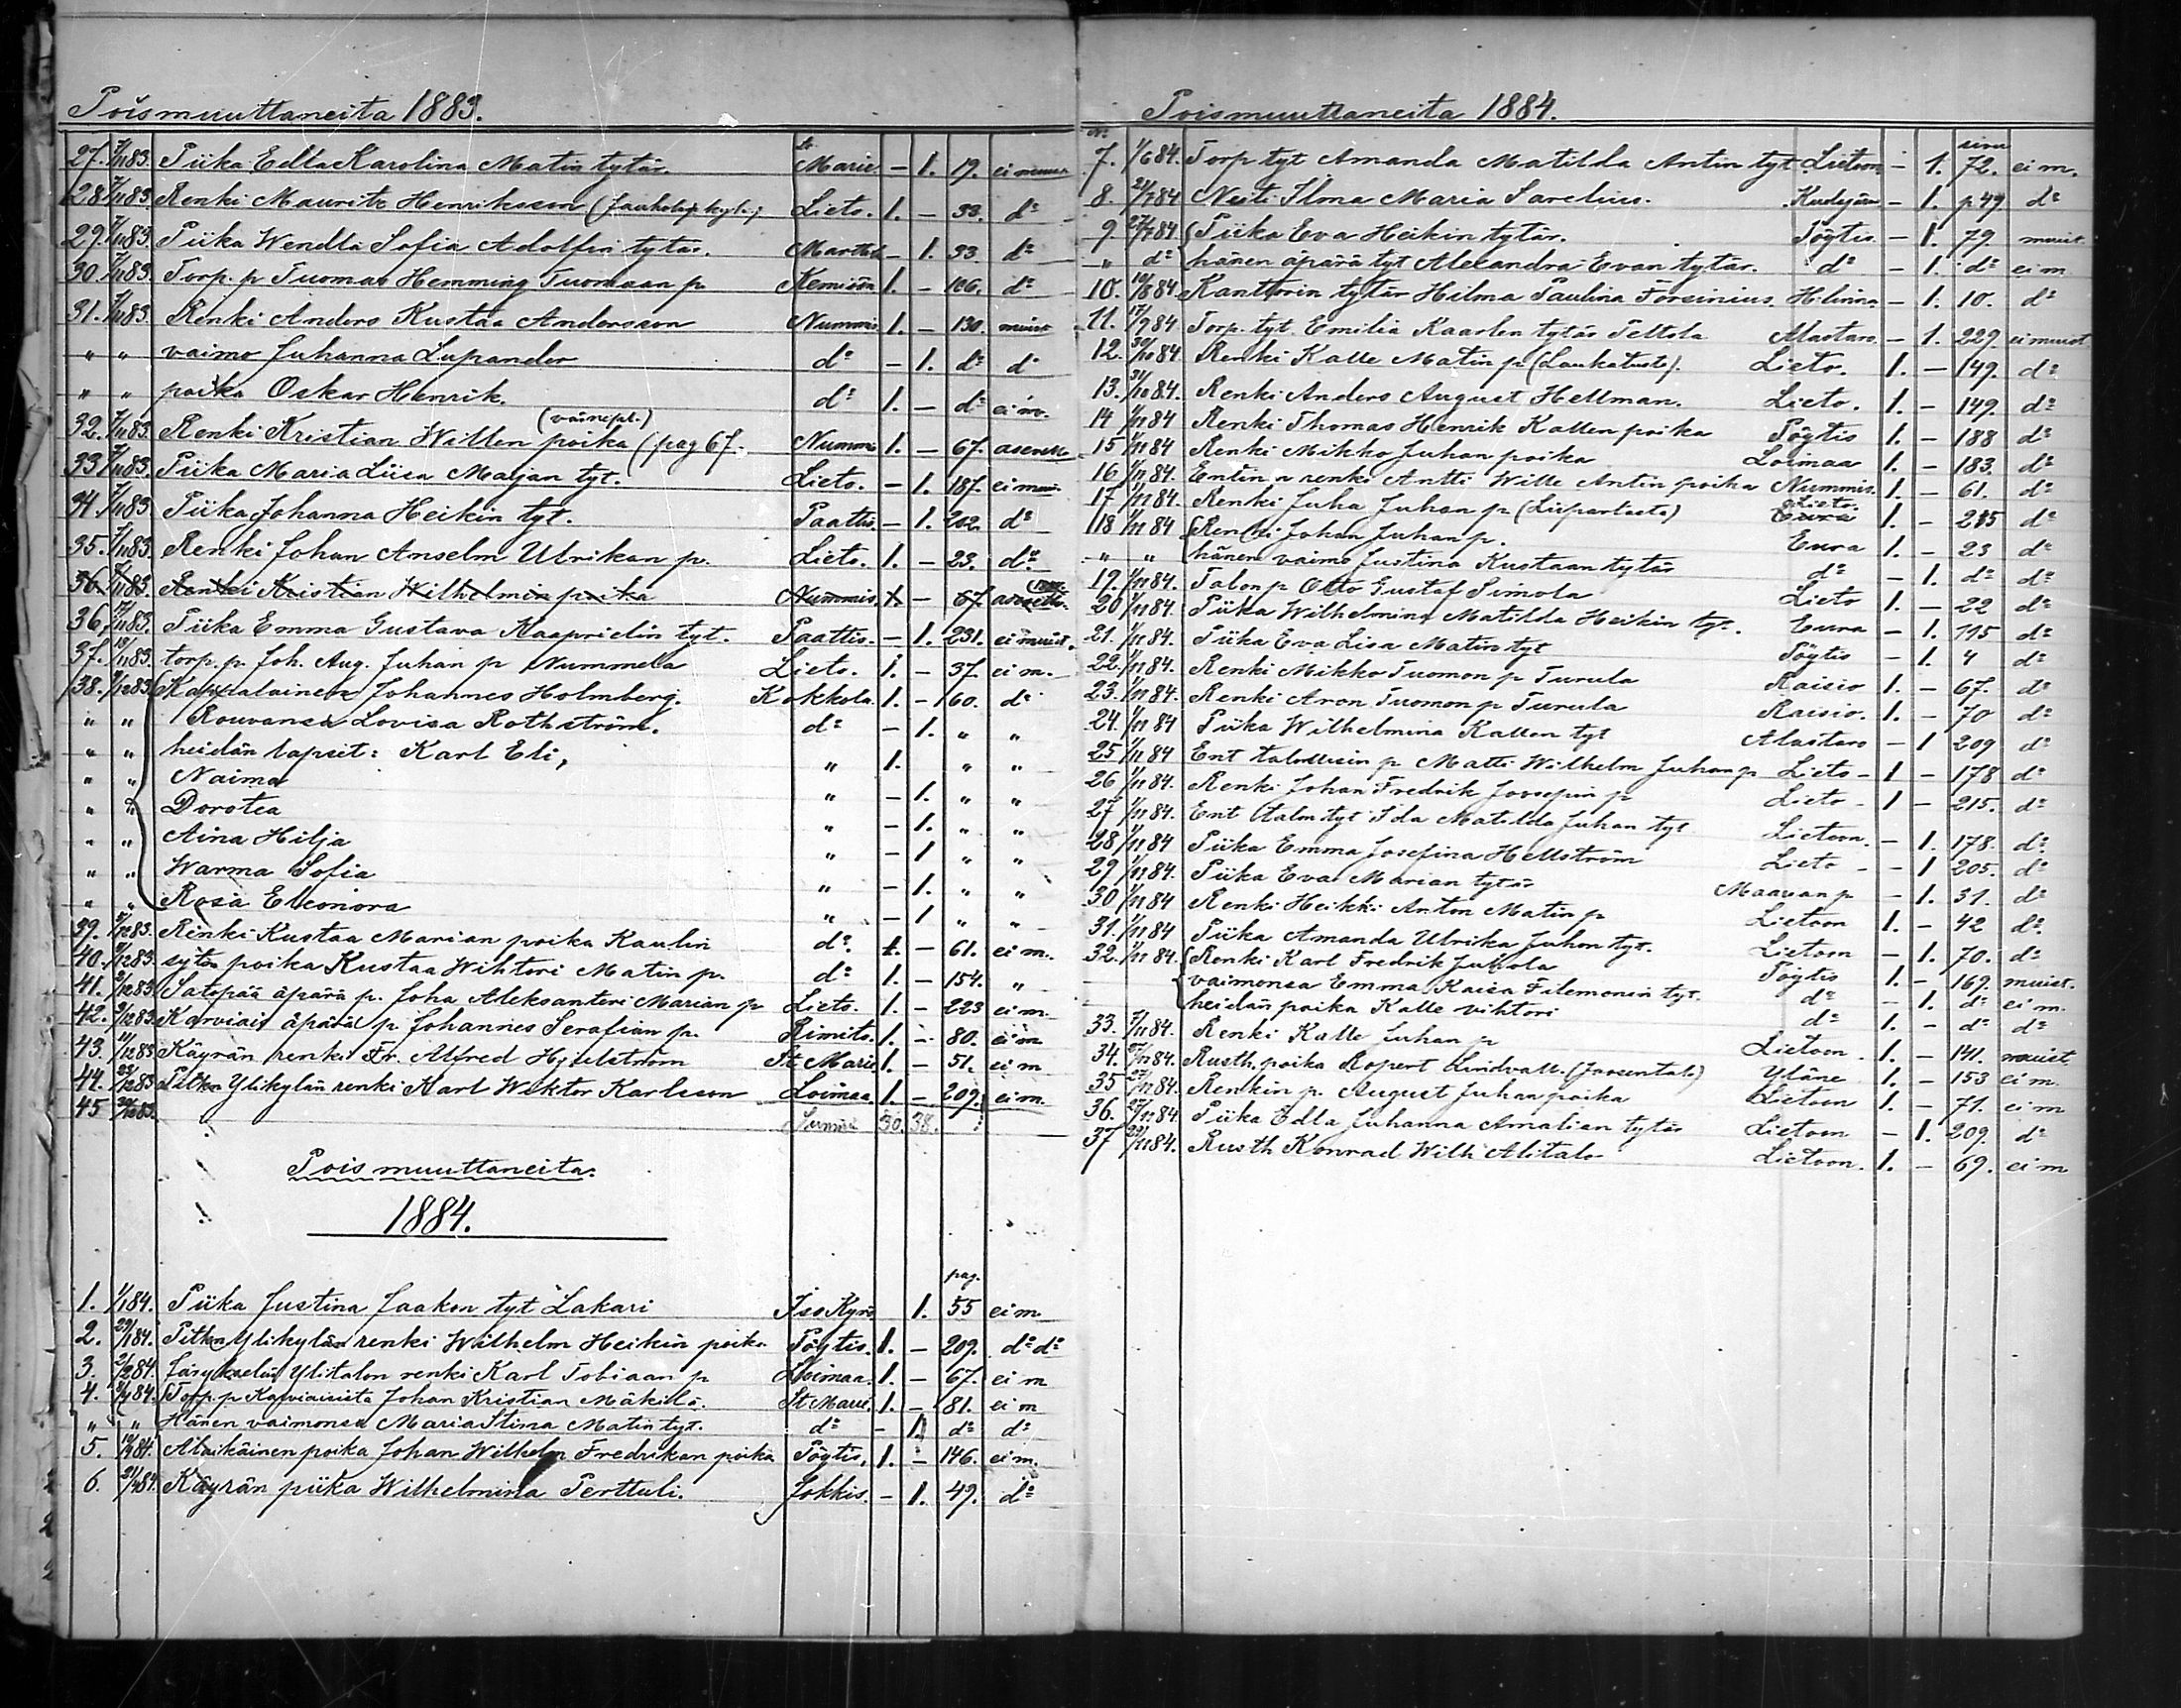 Poismuuttaneita 1883.
27. 1/11 83. Piika Edla Karolina Matin tytär. St Marie - 1. 19. ei muist
28 1/11 83. Renki Mauritz Henriksson Lieto. 1. - 33. do
29. 1/11 83. Piika Wendla Sofia Adolfin tytär. Marttila - 1. 33. do
30. 1/11 83. Torp. p Tuomas Hemming Tuomaan p Kemiöön 1. - 106. do
31. 1/11 83. Renki Anders Kustaa Andersson Nummis 1. - 130. muist
" " vaimo Juhanna Lupander do - 1. do do
" " poika Oskar Henrik. do 1. - do ei m.
32. 1/11 83. Renki Kristian Willen poika (pag 67. Nummi 1. - 67.
33 1/11 83. Piika Maria Liisa Marjan tyt. Lieto. - 1. 187. ei muis.
34. 1/11 83 Piika Johanna Heikin tyt. Paattis. - 1. 202. do
35. 1/11 83. Renki Johan Anselm Ulrikan p. Lieto. 1. - 23. do
36. 1/11 83. Renki Kristian Wilhelmin poika Nummis. 1. - 67.
36. 17/11 83. Piika Emma Gustava Kaaprielin tyt. Paattis. - 1. 231. ei muist.
37. 18/11 83. torp. p. Joh. Aug. Juhan p Nummela Lieto. 1. - 37. ei m.
38. /12 83. Kappalainen Johannes Holmberg. Kokkola. 1. - 60. do
" " Rouvansa Lovisa Rothström. do - 1. " "
" " heidän lapset: Karl Eli, " 1. " "
" " Naima " - 1. " "
" " Dorotea " - 1. " "
" " Aina Hilja " - 1 " "
" " Warma Sofia " - 1. " "
" " Rosa Eleonora " - 1 " "
39. /12 83. Renki Kustaa Marian poika Kaulin do. 1. - 61. ei m.
40. /12 83. sytin poika Kustaa Wihtori Matin p. do 1. - 154. "
41. /12 83. Satopää äpärä p. Joha Aleksanteri Marian p Lieto. 1. - 223 ei m.
42. /12 83. Karviais äpärä p Johannes Serafian p. Rimito. 1. - 80. ei m
43. 11/12 83 Käyrän renki Fr. Alfred Hjelström St Marie 1. - 51. ei m
44. 22/12 83 Pitkn Ylikylän renki Karl Wiktor Karlsson Loimaa. 1. - 209. ei m.
45 83. Summa 30. 38.
Pois muuttaneita.
1884.
pag.
1. 1/1 84. Piika Justina Jaakon tyt Lakari Iso Kyrö 1. 55 ei m
2. 29/1 84. Pitkn Ylikylän renki Wilhelm Heikin poika Pöytis. 1. - 209. do do
3. 2/2 84. Ylitalon renki Karl Tobiaan p Loimaa. 1. - 67. ei m
4. 84. Torp. p Karviaisista Johan Kristian Mäkilä. St Marie. 1. - 81. ei m
" " Hänen vaimonsa Maria Stina Matin tyt. do - 1. do do
5. 84. Alaikäinen poika Johan Wilhelm Fredrikan poika Pöytis. 1. - 146. ei m.
6. 84. Käyrän piika Wilhelmina Perttuli. Jokkis. - 1. 49. do
Poismuuttaneita 1884.
No sivu
7. 1/6 84. Torp tyt Amanda Matilda Antin tyt Lietoon - 1. 72. ei m.
8. 21/7 84 Neiti Ilma Maria Sarelius. - 1. p 49 do
9. 27/7 84. Piika Eva Heikin tytär. Pöytis - 1. 79. muist.
" do hänen äpärä tyt Alexandra Evan tytär. do - 1. do ei m
10. 10/8 84 Kanttorin tytär Hilma Paulina Forsinius. H:linna - 1. 10. do
11. 17/9 84 Torp. tyt. Emilia Kaarlen tytär Peltola Alastaro. - 1. 229. ei muist
12. 30/10 84. Renki Kalle Matin p (Laukatusto). Lieto. 1. - 149. do
13. 31/10 84. Renki Anders August Hellman. Lieto. 1. - 149. do
14 1/11 84 Renki Thomas Henrik Kallen poika Pöytis 1. - 188 do
15 1/11 84 Renki Mikko Juhan poika Loimaa 1. - 183. do
16 1/11 84. Entin n renki Antti Wille Antin poika Nummis. 1. - 61. do
17 1/11 84. Renki Juha Juhan p Lieto. Eura 1. - 285 do
18 1/11 84 Renki Johan Juhan p. Eura 1. - 23 do
" " hänen vaimo Justina Kustaan tytär do - 1. do do
19. 1/11 84. Talon p Otto Gustaf Simola Lieto 1. - 22 do
20 1/11 84. Piika Wilhelmina Matilda Heikin tyt. Eura - 1. 195 do
21. 1/11 84. Piika Eva Lisa Matin tyt Pöytis - 1. 4 do
22. 1/11 84. Renki Mikko Tuomon p Turula Raisio 1. - 67. do
23. 1/11 84. Renki Aron Tuomon p Turula Raisio. 1. - 70 do
24. 1/11 84 Piika Wilhelmina Kallen tyt Alastaro - 1 209 do
25 1/11 84 Ent talollisin p Matti Wilhelm Juhan p Lieto - 1 - 178 do
26 1/11 84. Renki Johan Fredrik Joosepin p Lieto - 1 - 215. do
27 1/11 84. Ent talon tyt Ida Matilda Juhan tyt Lietoon. - 1. 178. do
28 1/11 84 Piika Emma Josefina Hellström Lieto - - 1 205. do
29 1/11 84. Piika Eva Marian tytär Maarian p - 1. 31. do
30 1/11 84 Renki Heikki Anton Matin p Lietoon 1. - 42 do.
31. 1/11 84 Piika Amanda Ulrika Juhan tyt. Lietoon - 1. 70. do
32. 1/11 84. Renki Karl Fredrik Jukola Pöytis 1. - 169. muist.
vaimonsa Emma Kaisa Filemonin tyt. do - 1. do ei m.
heidän poika Kalle vihtori do 1. - do do
33. /11 84. Renki Kalle Juhan p Lietoon. 1. - 141. muist
34. /11 84. Rusth. poika Ropert Lindvall. Yläne 1. - 153 ei m.
35 27/11 84. Renkin p. August Juhan poika Lietoon 1. - 71. ei m
36. 27/11 84. Piika Edla Juhanna Amalian tytär Lietoon - 1. 209. do
37 29/11 84. Rusth Konrad Wilh Alitalo Lietoon. 1. - 69. ei m